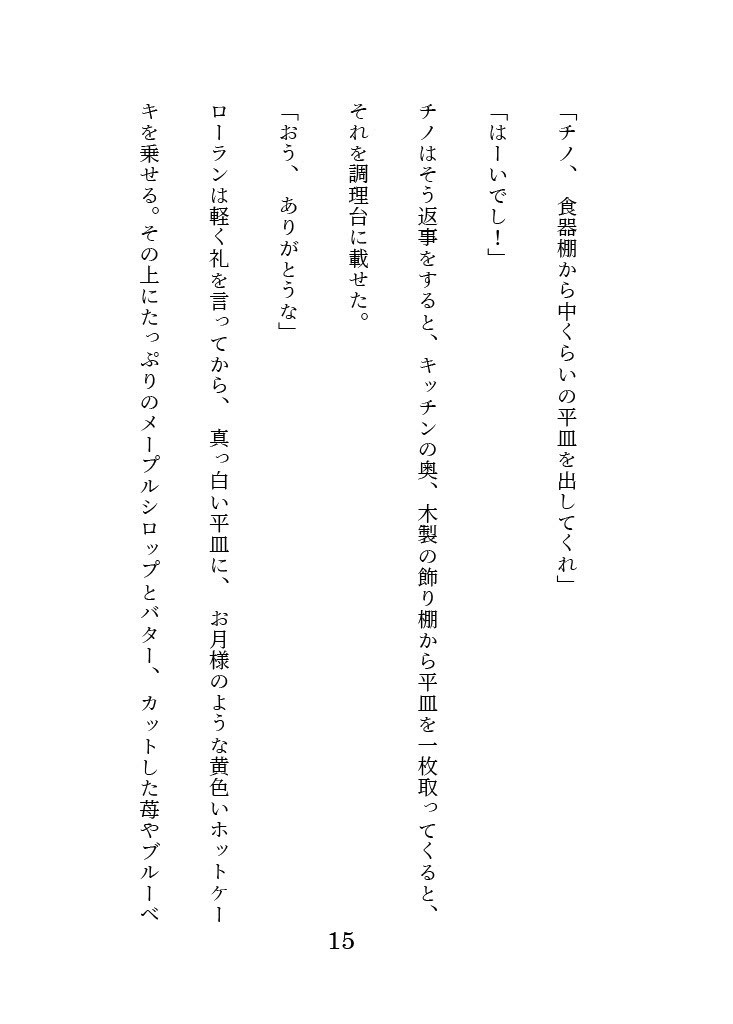 「チノ、食器棚から中くらいの平皿を出してくれ」
「はーいでし！」
チノはそう返事をすると、キッチンの奥、木製の飾り棚から平皿を一枚取ってくると、
それを調理台に載せた。
「おう、ありがとうな」
ローランは軽く礼を言ってから、真っ白い平皿に、お月様のような黄色いホットケー
キを乗せる。その上にたっぷりのメープルシロップとバター、カットした苺やブルーベ
15